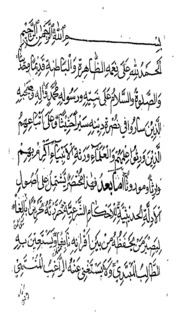 بسم الله الرحمن الرحيم
الحمد لله على نعمه الظاهرة والباطنة قديما وحديثا
والصلوة والسلام على نبيه ورسوله محمد وآله وصحبه
الذين ساروا في نصرة دينه سيرا حثيثا وعلى أتباعهم
الذين ورثوا علمهم والعلماء ورثة الأنبياء أكرم بهم
وارثا وموروثا أما بعد فهذا مختصر يشتمل على أصول
الأدلة الحديثية للأحكام الشرعية حررته تحريرا بالغا
ليصير من يحفظه من بين أقرانه نابغا ويستعين به
الطالب المبتدي ولا يستغني عنه الراغب المنتهي